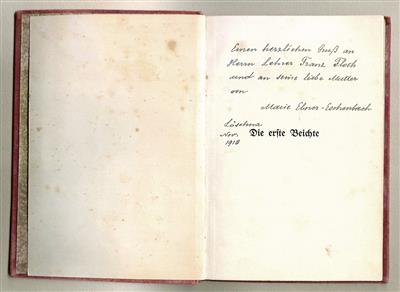 Einen herzlichen Gruß an
Herrn Lehrer Franz Floch
und an seine liebe Mutter
von
Marie Ebner-Eschenbach
Nov.
1910
Die erste Beichte